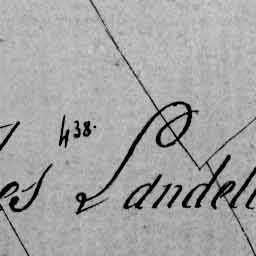 438.
es Landell